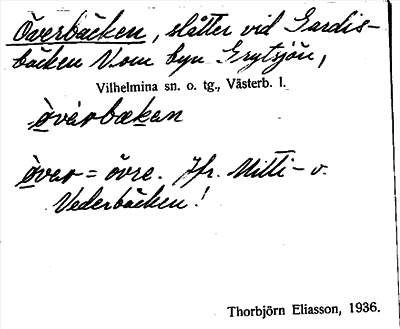 Överbäcken, slåtter vid Gardis-
bäcken V om byn Grytsjön,
Vilhelmina sn. o. tg., Västerb. l.
òvárbækan
òvar = övre. Jfr. Mitti- o.
Vederbäcken!
Thorbjörn Eliasson, 1936.